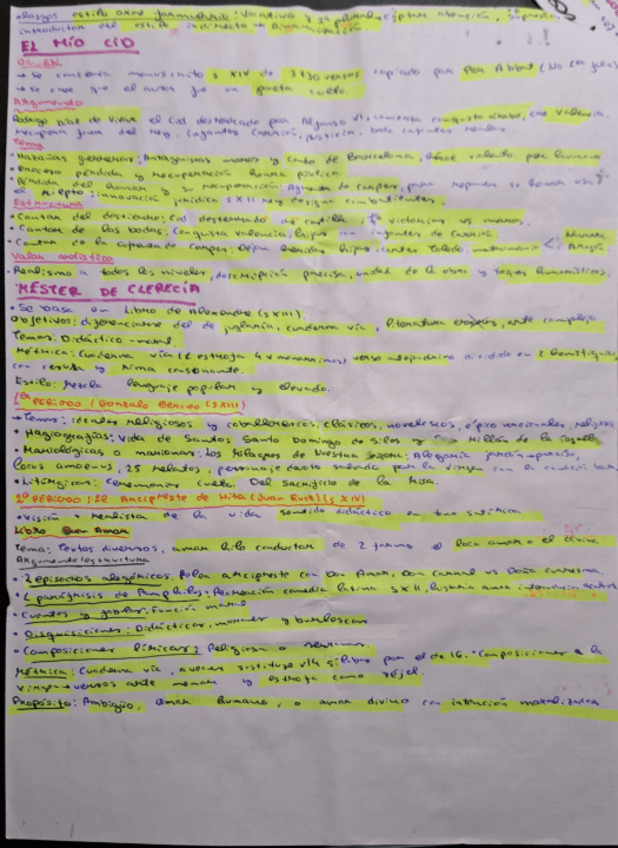 Rasgos estilo oral formulario: Vocativo y 2ª plural captan atención,
introductor del estilo indirecto → Dinamización.
EL MÍO CID
→ Se conserva manuscrito s XIV de 3730 versos copiado por Per Abbat (No es
→ Se cree que el autor fue un poeta culto.
Argumento
Rodrigo Díaz de Vivar el Cid desterrado por Alfonso VI, comienza conquista cae Valencia,
recupera favor del rey, infantes Carrión, justicia, boda infantes
Tema
• Hazañas guerreras: Antagonistas moros y Conde de Barcelona, héroe valiente pero humano
• Proceso pérdida y recuperación honra pública
• Pérdida del honor y su recuperación: Afrenta de Corpes, para reponer su honor usa
el Riepto: innovación jurídica s XII rey designa combatientes.
Estructura
• Cantar del destierro: Cid desterrado de Castilla, victorias vs moros.
• Cantar de las bodas: Conquista Valencia, hijas con infantes de Carrión.
• Cantar de la afrenta de Corpes: Dejan heridas hijas, cortes Toledo, matrimonio < Navarra
Aragón
Valor artístico
• Realismo a todos los niveles, descripción precisa, unidad de la obra y toques humorísticos.
MÉSTER DE CLERECÍA
• Se basa en Libro de Alexandre (s XIII).
Objetivos: diferenciarse del de juglaría, cuaderna vía, literatura arte complejo.
Temas: Didáctico-moral.
Métrica: Cuaderna vía (1 estrofa 4 v monorrimos) verso alejandrino dividido en 2 hemistiquios
con cesura y rima consonante.
Estilo: Mezcla lenguaje popular y elevado.
1er PERIODO (Gonzalo Berceo (s XIII)
→ Temas: ideales religiosos y caballerescos, clásicos, novelescos, épico nacionales, religiosos
• Hagiografías: Vida de Santos Santo Domingo de Silos y San Millán de la Cogolla
• Mariológicas o marianas: Los Milagros de Nuestra Señora: Alegoría jardín-paraíso,
locus amoenus, 25 relatos, personaje devoto salvado por la Virgen con la condición
• Litúrgicas: Ceremonias culto. Del Sacrificio de la Misa.
2º PERIODO: El Arcipreste de Hita (Juan Ruiz) (s XIV)
• Visión + realista de la vida sentido didáctico en tono satírico.
Libro Buen Amor
Tema: Textos diversos, amor hilo conductor de 2 formas o loco amor o el divino.
Argumento/estructura
• 2 episodios alegóricos. Pelea arcipreste con Don Amor, Don Carnal vs Doña Cuaresma.
• Paráfrasis de Pamphilus: Recreación comedia latina s XII, historia amor
• Cuentos y fábulas. Función moral
• Disquisiciones: Didácticas, morales y burlescas
• Composiciones líricas: Religiosa o
Métrica: Cuaderna vía, a veces sustituye v14 sílabas por el de 16. • Composiciones a la
Virgen → versos arte menor y estrofa como zéjel.
Propósito: Ambigüo, amor humano, o amor divino con intención moralizadora.